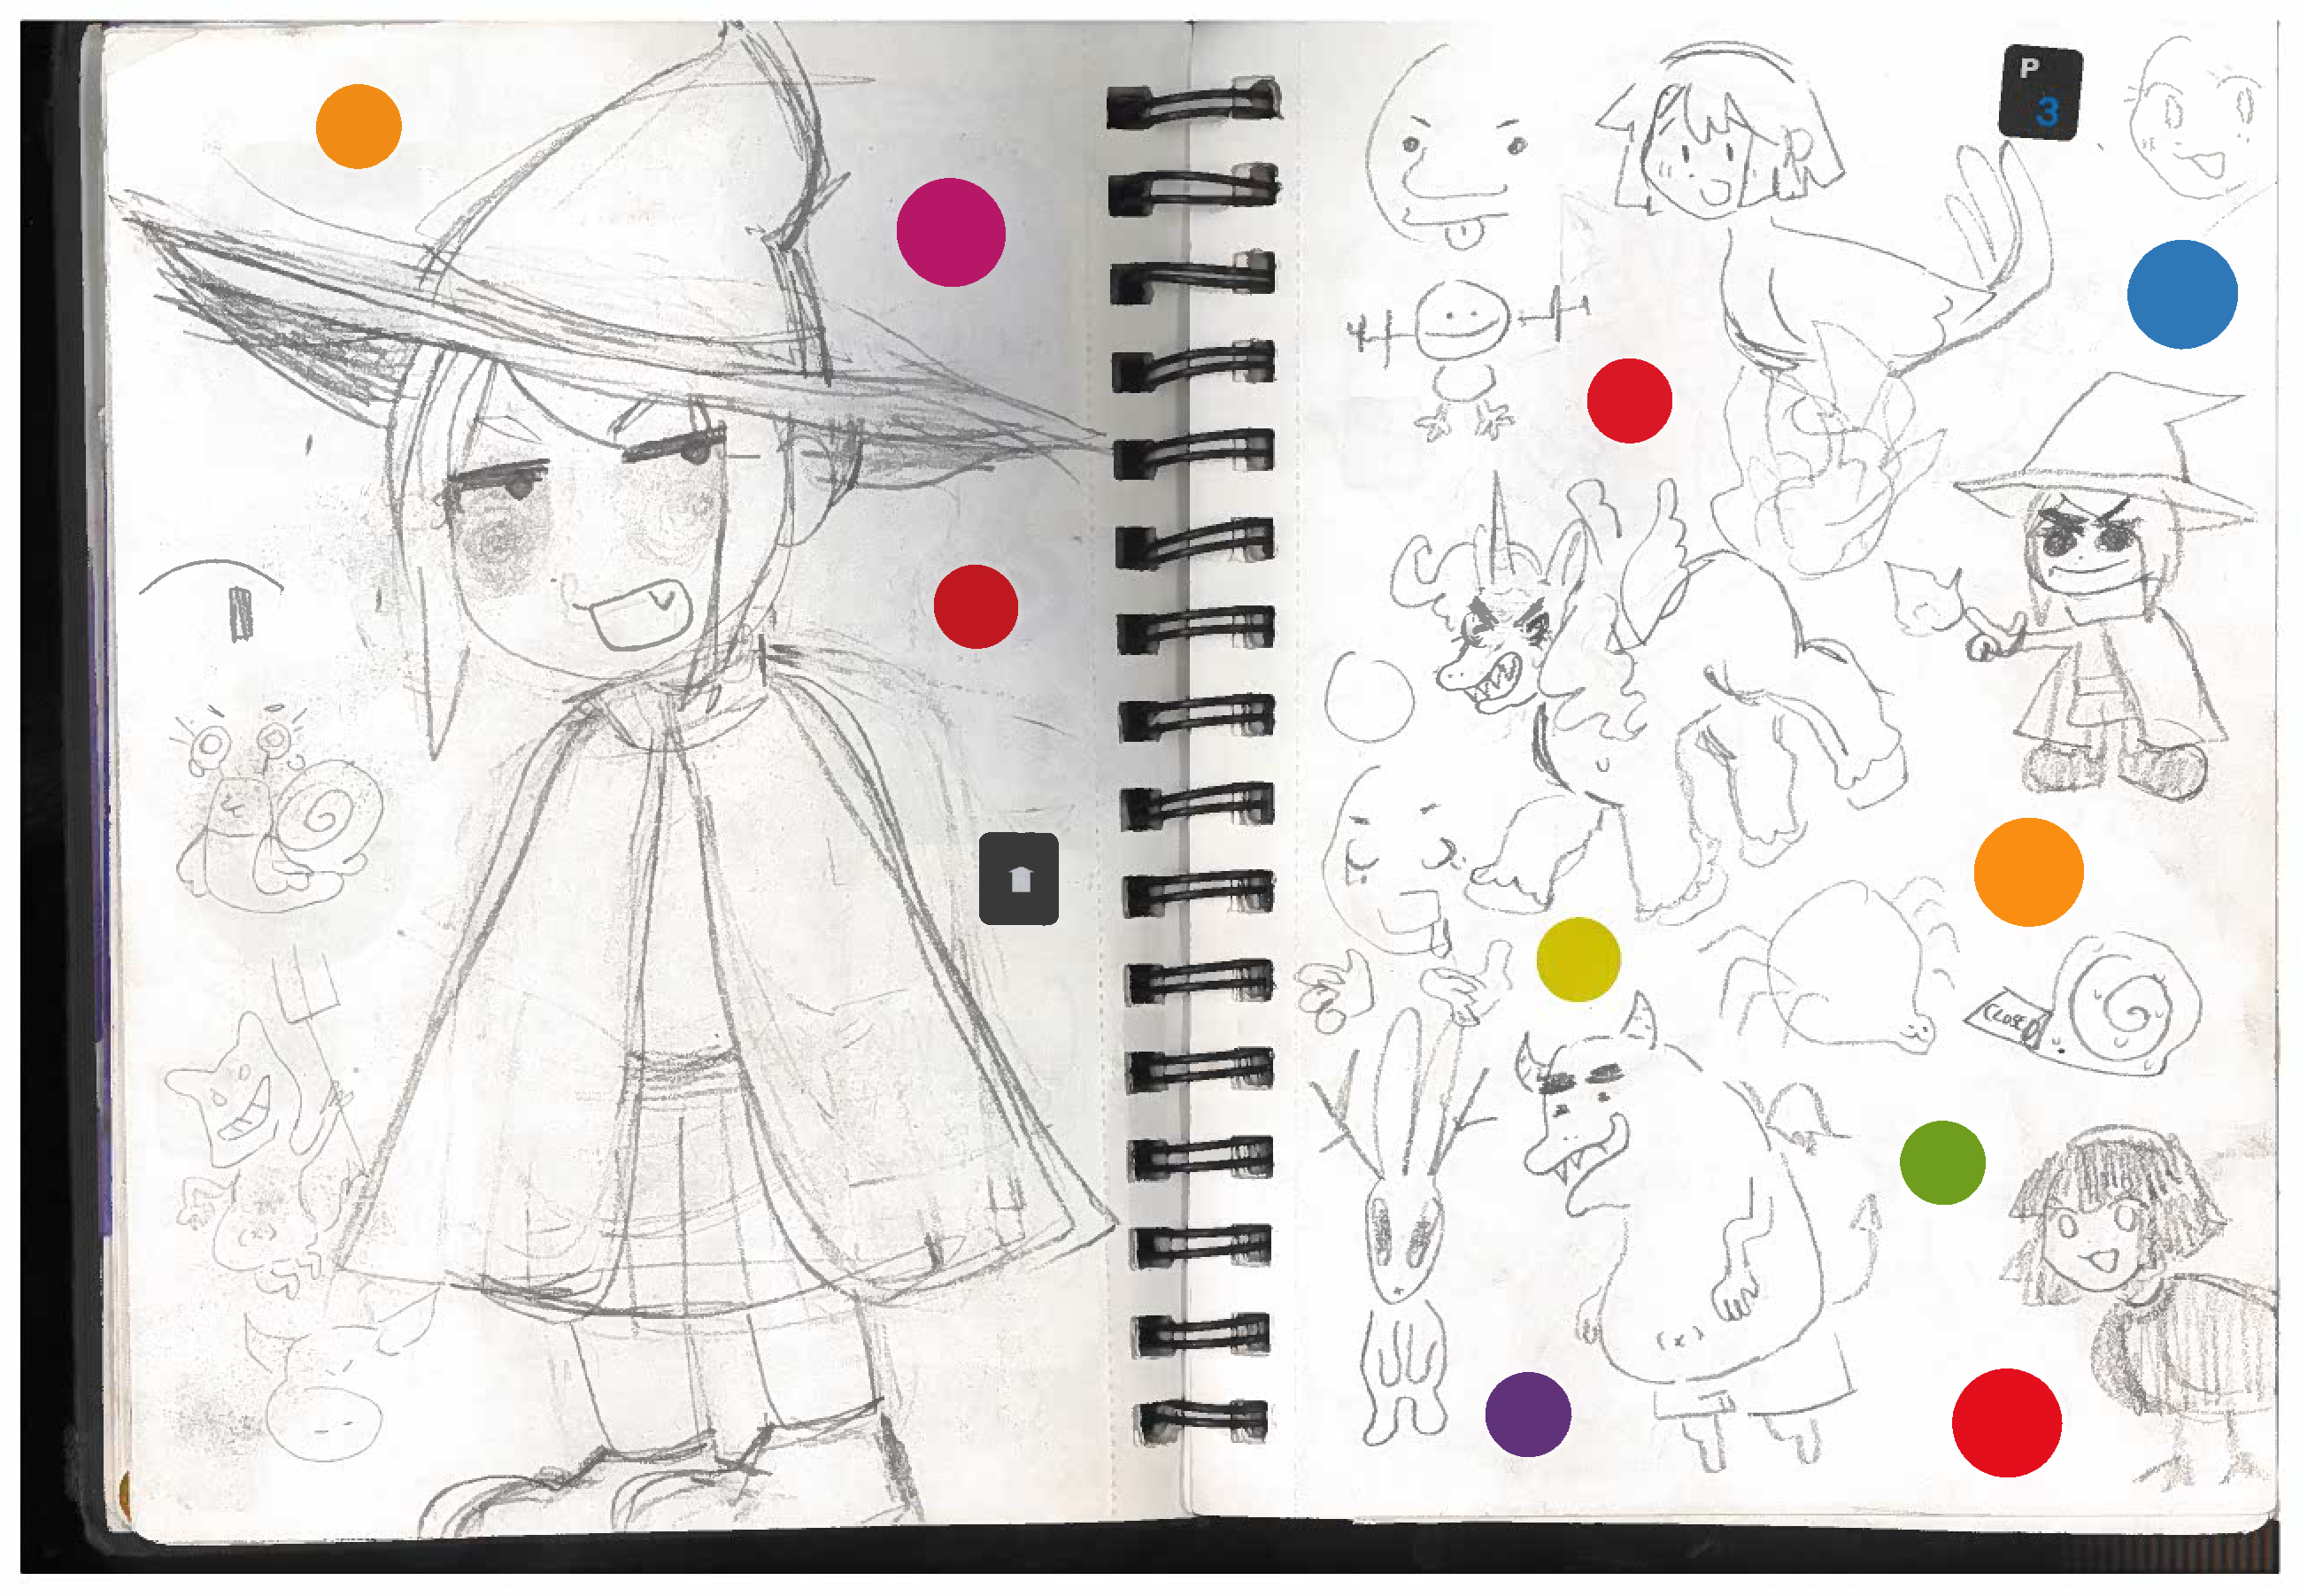 P
3
CLOSED